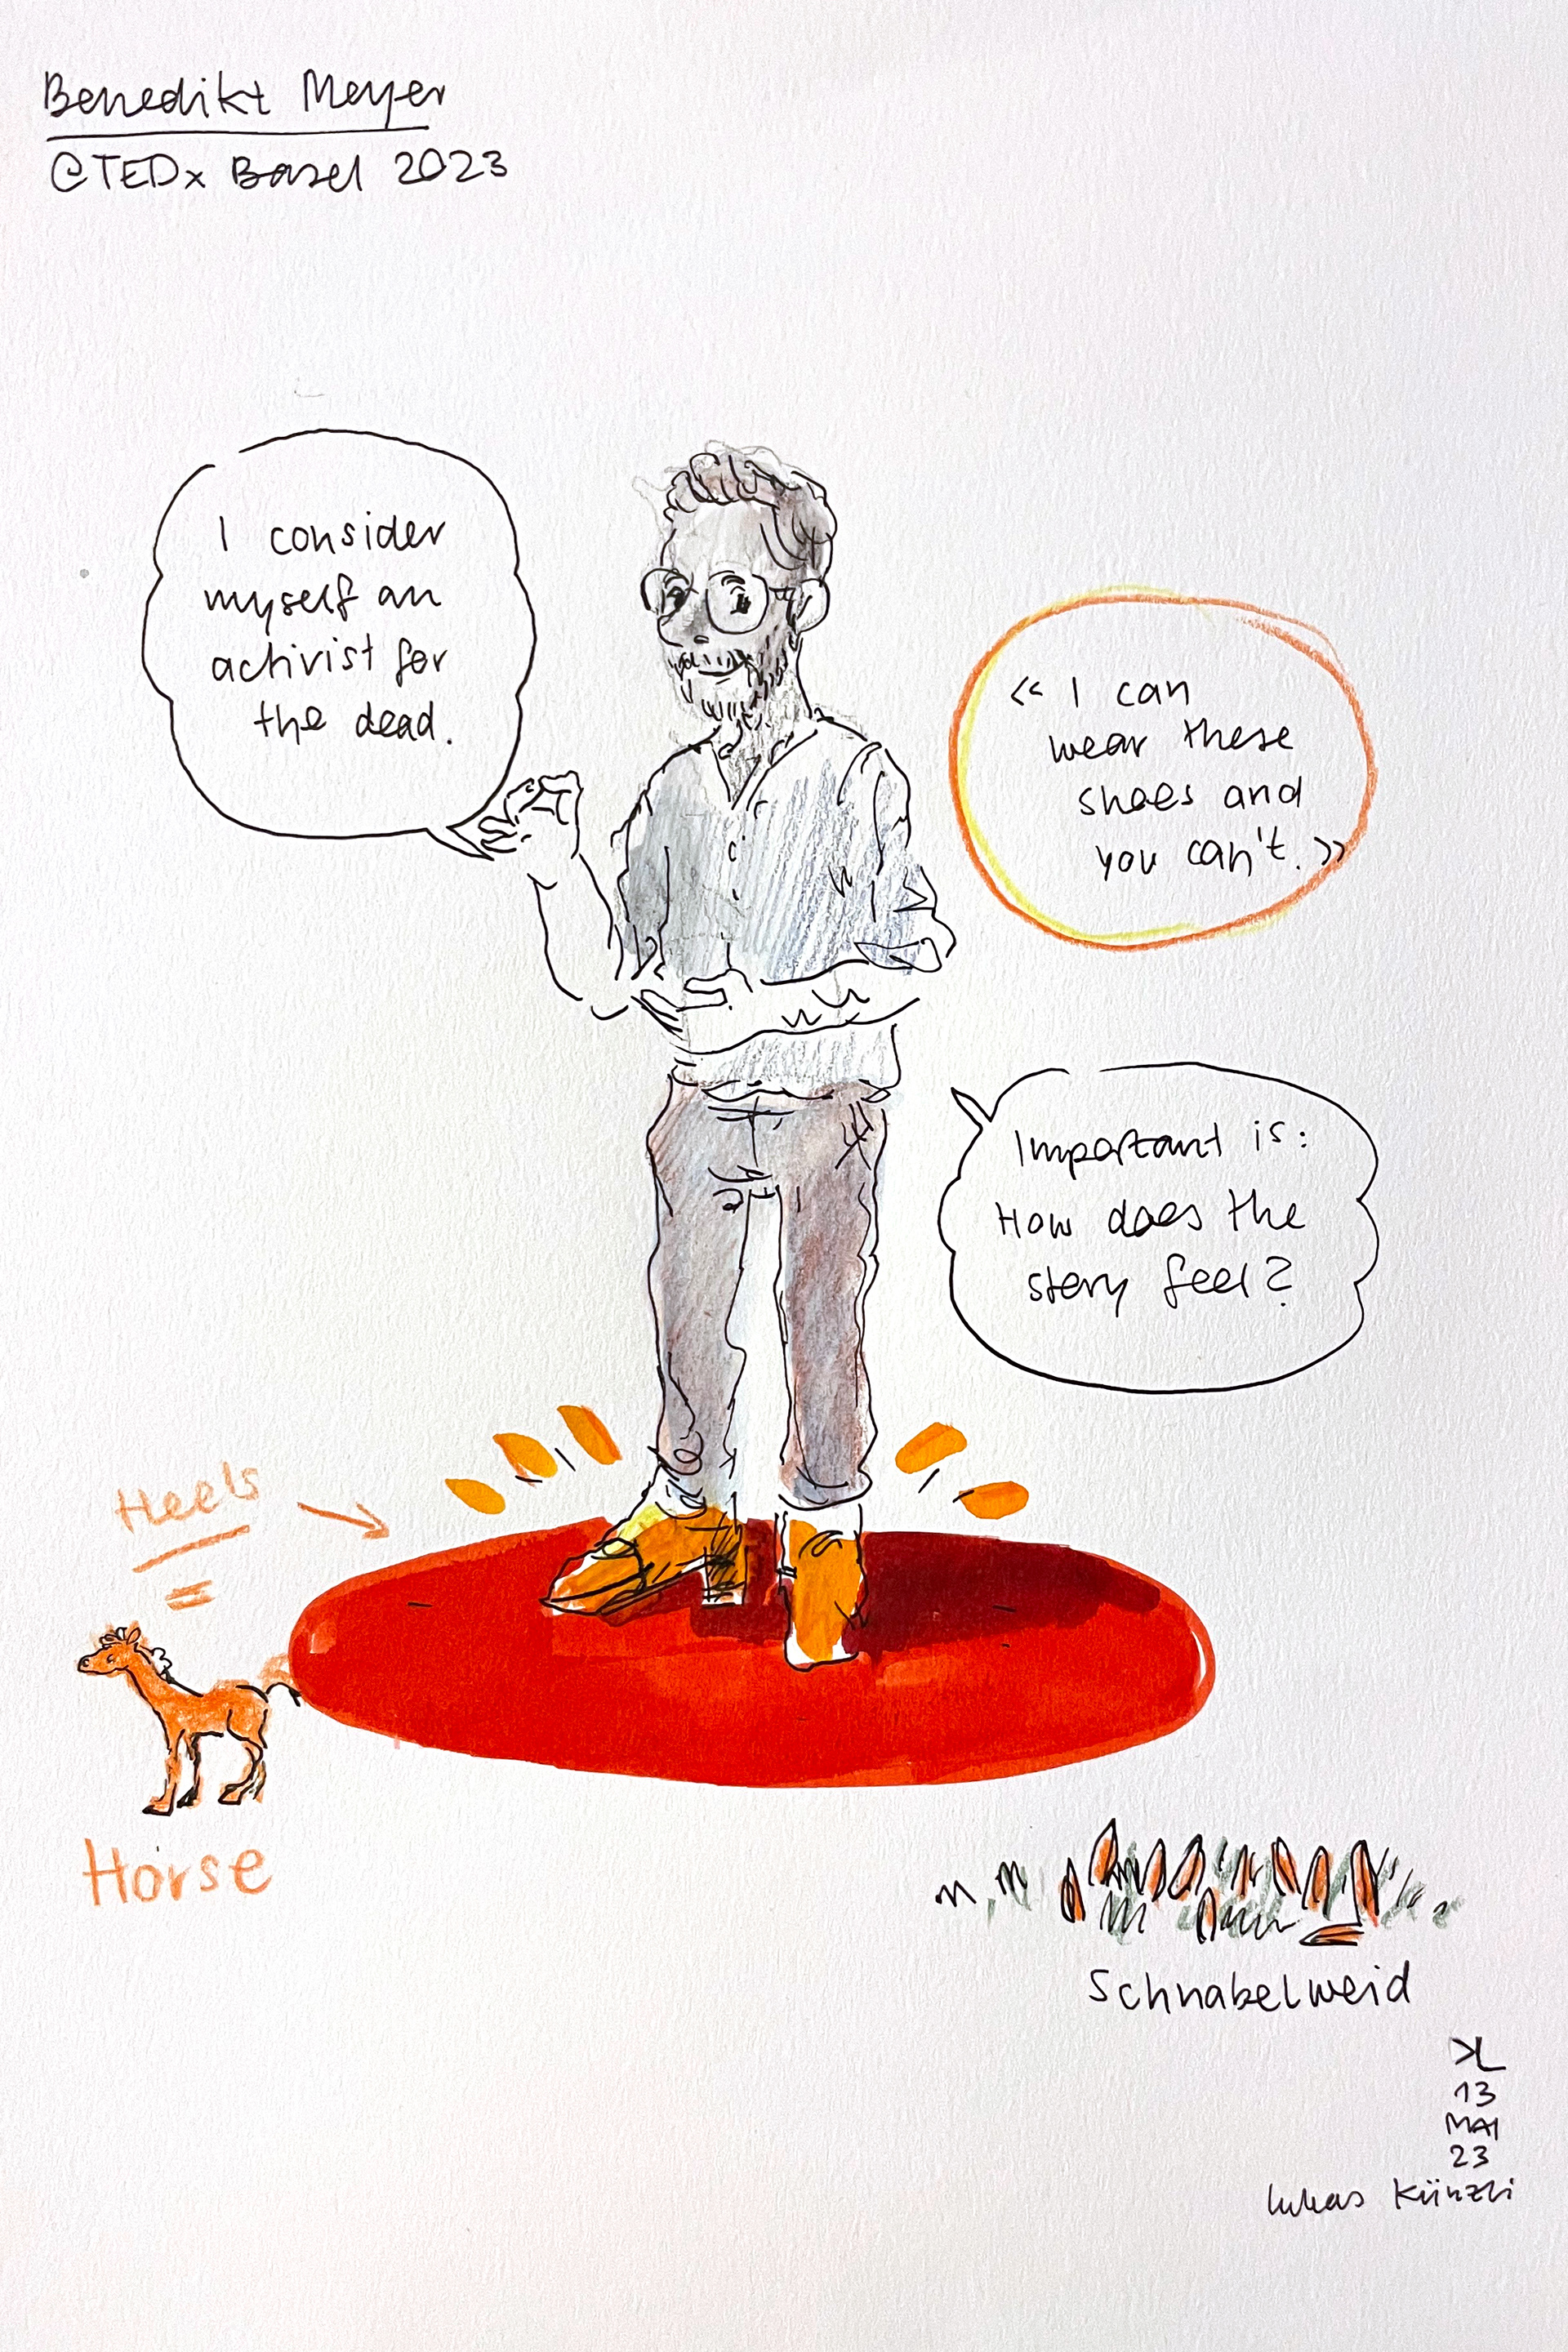 Benedikt Meyer
@TEDx Basel 2023
I consider
myself an
activist for
the dead.
« I can
wear these
shoes and
you can't. »
Important is:
How does the
story feel?
Heels
=
Horse
Schnabelweid
KL
13
MAI
23
Lukas Künzli